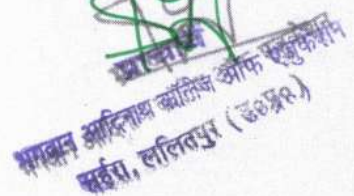 प्राचार्य
भगवान आदिनाथ कॉलिज ऑफ एजुकेशन
महर्रा, ललितपुर (उ०प्र०)